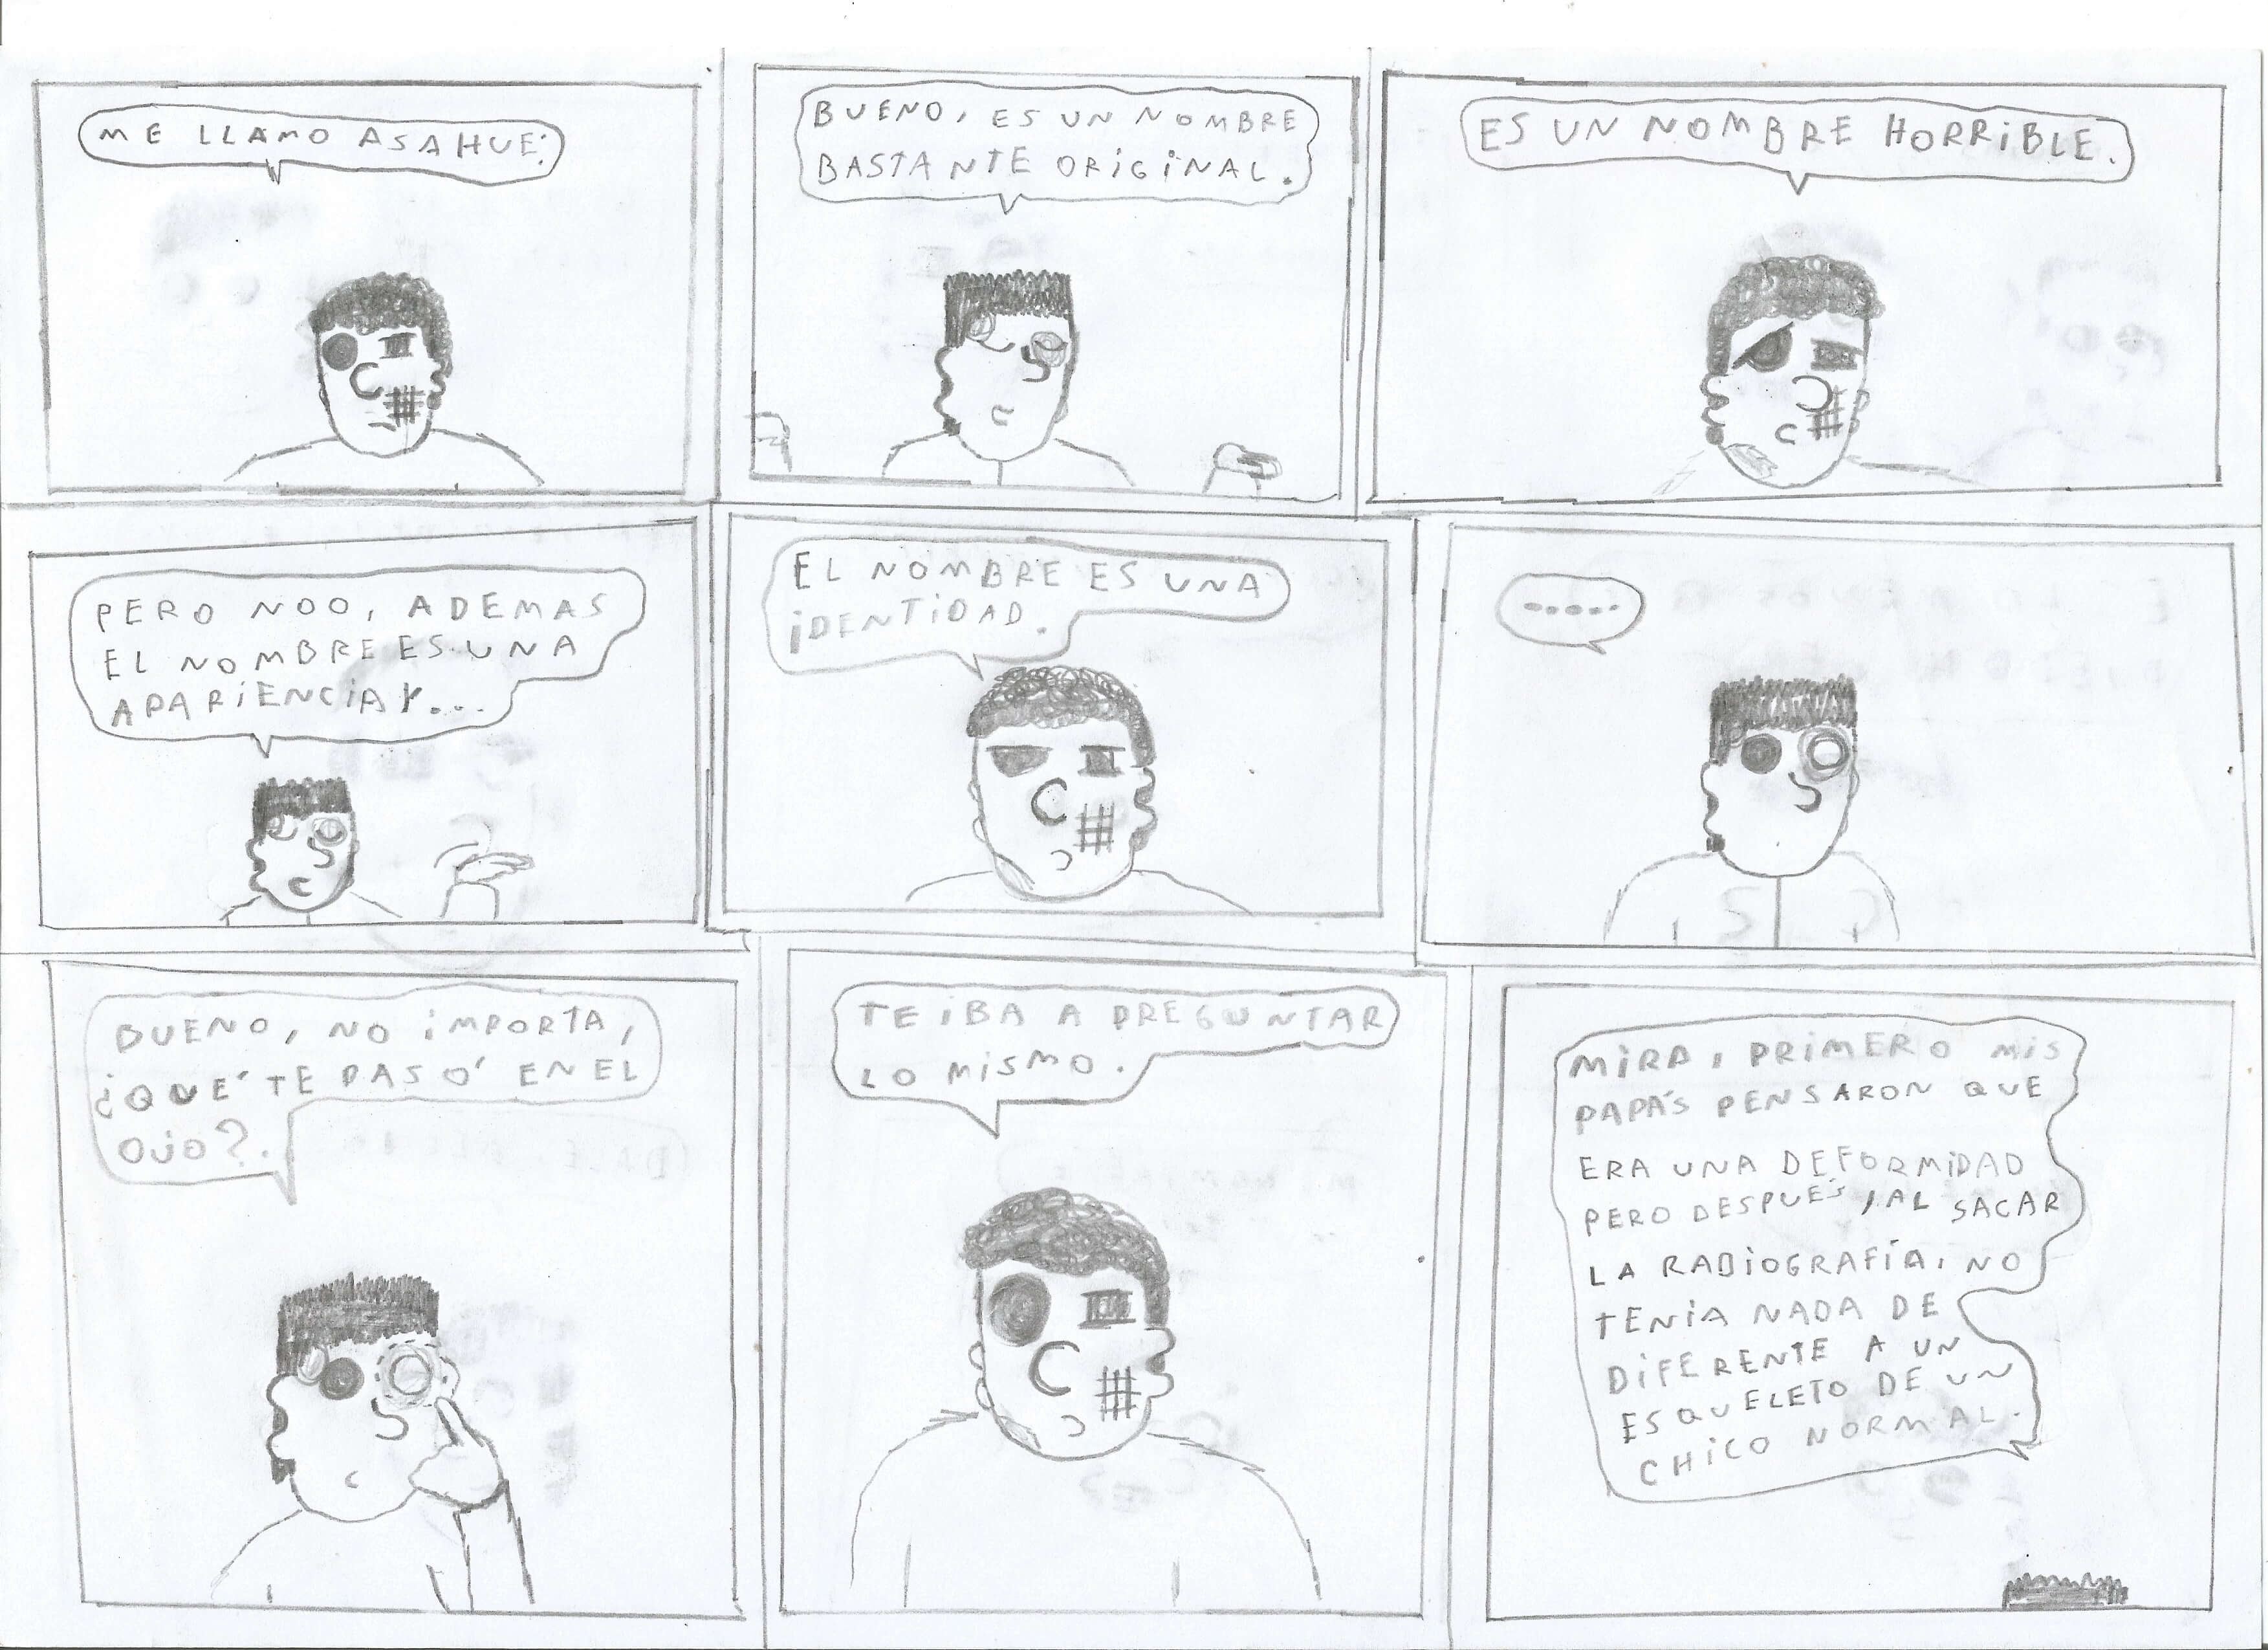 ME LLAMO ASAHUE.
BUENO, ES UN NOMBRE
BASTANTE ORIGINAL.
ES UN NOMBRE HORRIBLE.
PERO NOO, ADEMAS
EL NOMBRE ES UNA
APARIENCIA Y...
EL NOMBRE ES UNA
IDENTIDAD.
.....
BUENO, NO IMPORTA,
¿QUÉ TE PASÓ EN EL
OJO?.
TE IBA A PREGUNTAR
LO MISMO.
MIRA, PRIMERO MIS
PAPÁS PENSARON QUE
ERA UNA DEFORMIDAD
PERO DESPUÉS, AL SACAR
LA RADIOGRAFÍA, NO
TENIA NADA DE
DIFERENTE A UN
ESQUELETO DE UN
CHICO NORMAL.